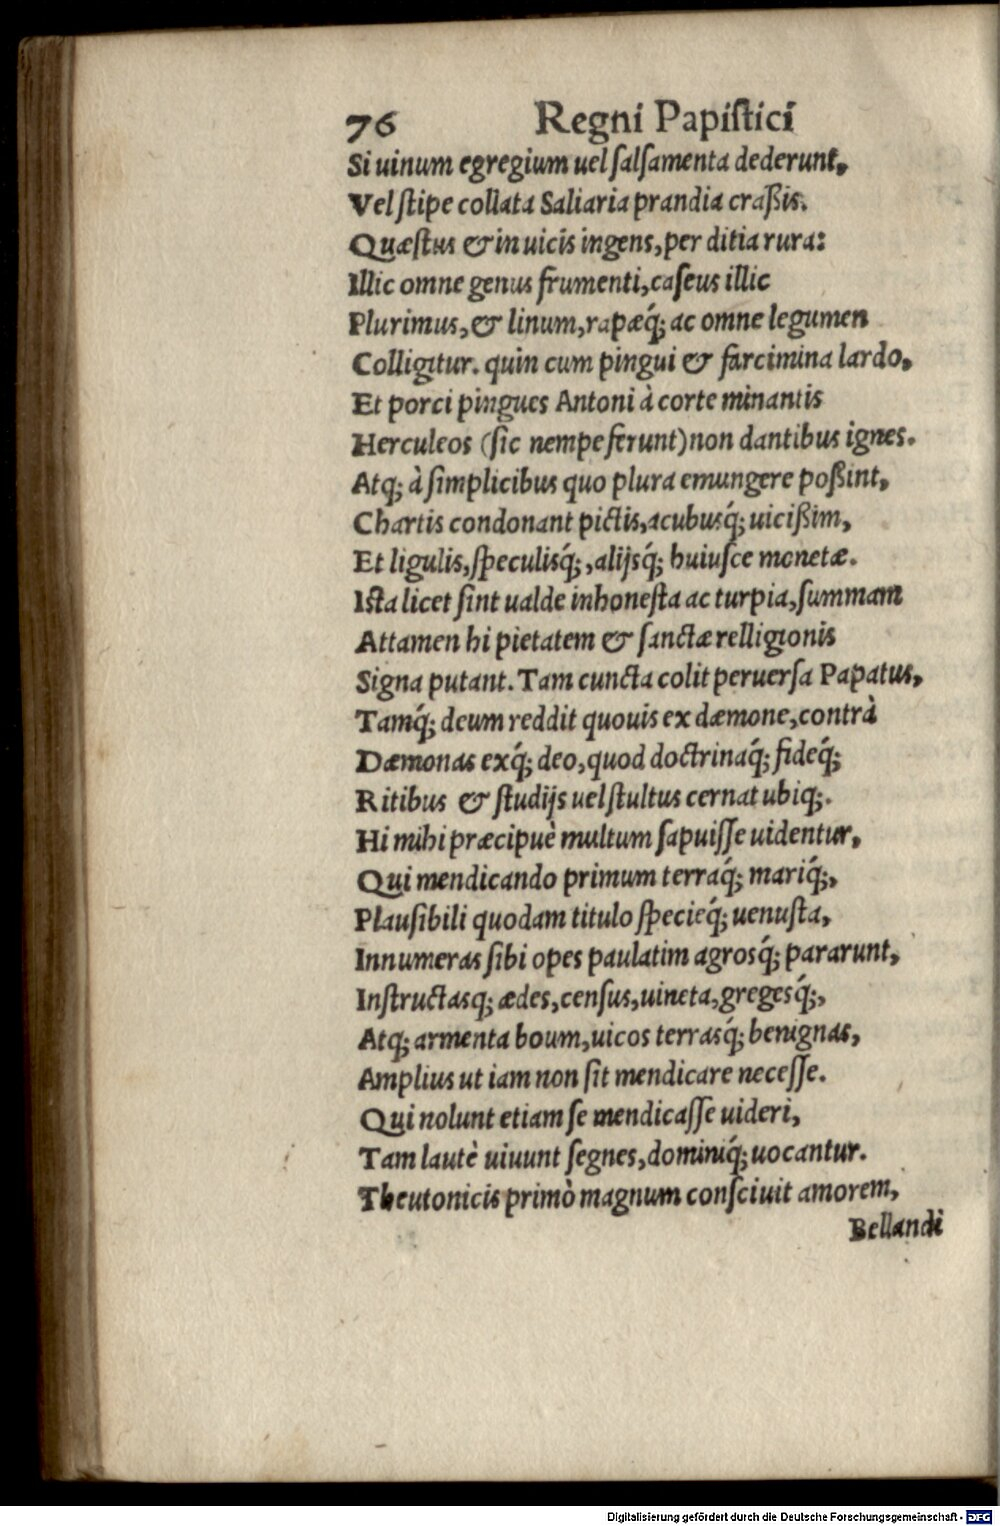 76 Regni Papiſtici
Si uinum egregium uel ſalſamenta dederunt,
Vel ſtipe collata Saliaria prandia craßis.
Quæſtus & in uicis ingens, per ditia rura:
Illic omne genus frumenti, caſeus illic
Plurimus, & linum, rapæq́; ac omne legumen
Colligitur. quin cum pingui & farcimina lardo,
Et porci pingues Antoni à corte minantis
Herculeos (ſic nempe ferunt) non dantibus ignes.
Atq; à ſimplicibus quo plura emungere poßint,
Chartis condonant pictis, acubusq́; uicißim,
Et ligulis, ſpeculisq́;, alijsq́; huiuſce monetæ.
Iſta licet ſint ualde inhoneſta ac turpia, ſummam
Attamen hi pietatem & ſanctæ relligionis
Signa putant. Tam cuncta colit peruerſa Papatus,
Tamq́; deum reddit quouis ex dæmone, contrà
Dæmonas exq́; deo, quod doctrinaq́; fideq́;
Ritibus & ſtudijs uel ſtultus cernat ubiq;.
Hi mihi præcipuè multum ſapuiſſe uidentur,
Qui mendicando primum terraq́; mariq́;,
Plauſibili quodam titulo ſpecieq́; uenuſta,
Innumeras ſibi opes paulatim agrosq́; pararunt,
Inſtructasq; ædes, cenſus, uineta, gregesq́;,
Atq; armenta boum, uicos terrasq́; benignas,
Amplius ut iam non ſit mendicare neceſſe.
Qui nolunt etiam ſe mendicaſſe uideri,
Tam lautè uiuunt ſegnes, dominiq́; uocantur.
Theutonicis primò magnum conſciuit amorem,
Bellandi
Digitalisierung gefördert durch die Deutsche Forschungsgemeinschaft - DFG